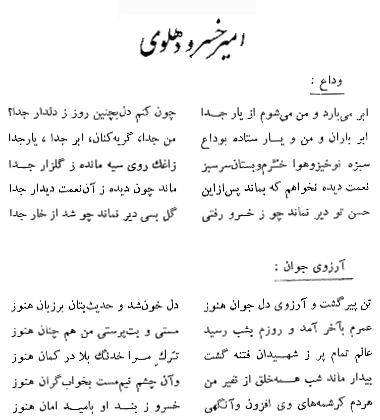 امیر خسرو دهلوی
وداع :
ابر می‌بارد و من می‌شوم از یار جدا چون کنم دل بچنین روز ز دلدار جدا؟
ابر باران و من و یار ستاده بوداع من جدا، گریه‌کنان، ابر جدا ، یار جدا
سبزه نوخیز و هوا خرم و بستان سرسبز زاغک روی سیه مانده ز گلزار جدا
نعمت دیده نخواهم که بماند پس از این ماند چون دیده از آن نعمت دیدار جدا
حسن تو دیر نماند چو ز خسرو رفتی گل بسی دیر نماند چو شد از خار جدا
آرزوی جوان :
تن پیر گشت و آرزوی دل جوان هنوز دل خون شد و حدیث بتان بر زبان هنوز
عمرم بآخر آمد و روزم بشب رسید مستی و بت‌پرستی من هم چنان هنوز
عالم تمام پر ز شهیدان فتنه گشت ترک مرا خدنگ بلا در کمان هنوز
بیدار ماند شب همه خلق از نفیر من وآن چشم نیم‌مست بخواب گران هنوز
هر دم کرشمه‌های وی افزون وآنگهی خسرو ز بند او بامید امان هنوز